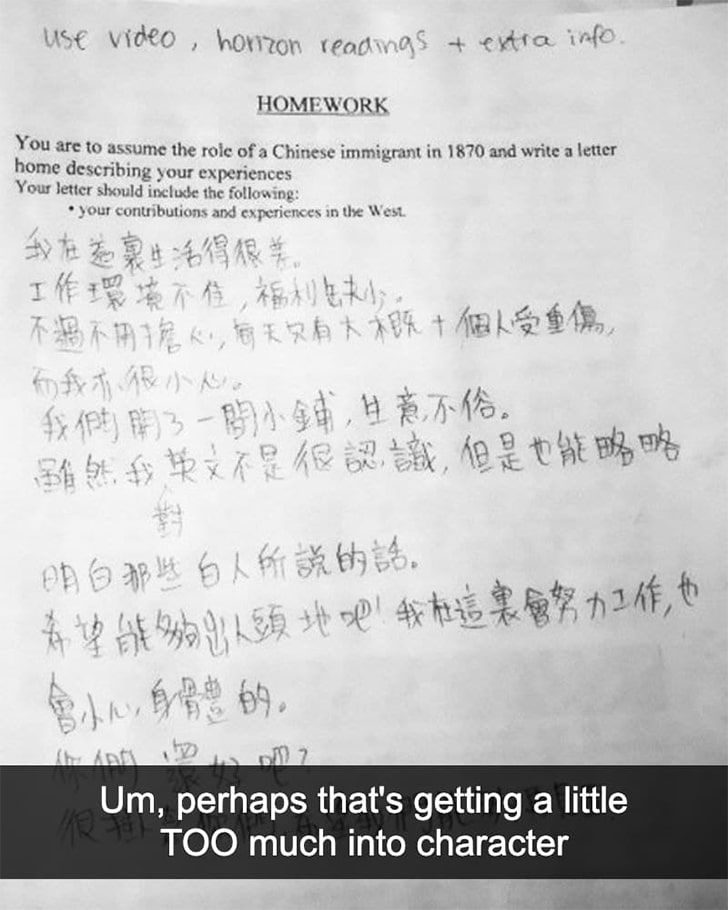 use video, horizon readings + extra info.
HOMEWORK
You are to assume the role of a Chinese immigrant in 1870 and write a letter
home describing your experiences
Your letter should include the following:
• your contributions and experiences in the West.
我在這裏生活得很差。
工作環境不佳,福利缺少。
不過不用擔心,每天只有大概十個人受重傷,
而我亦很小心。
我們開了一間小鋪,生意不俗。
雖然我英文不是很認識,但是也能略略
對
明白那些白人所說的話。
希望能夠出人頭地吧!我在這裏會努力工作,也
會小心身體的。
你們還好吧?
Um, perhaps that's getting a little
TOO much into character